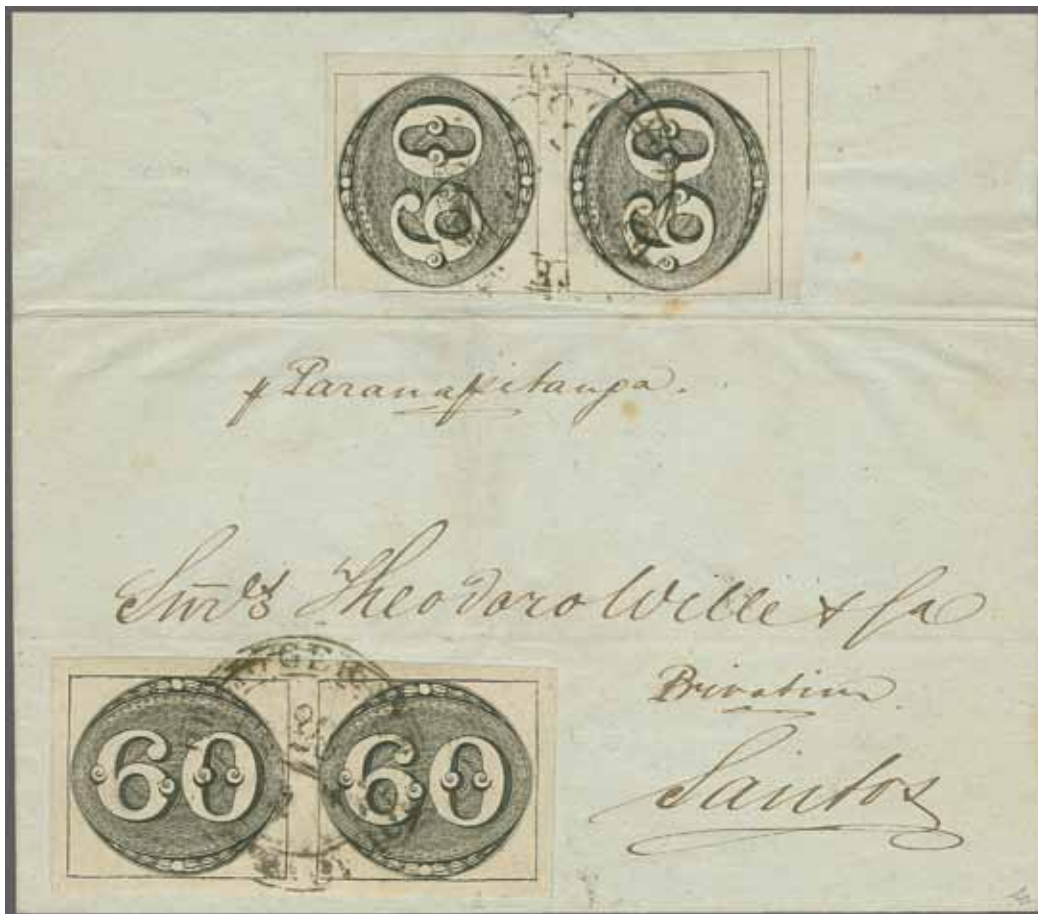 60 60
p Paranapitanga.
Snrˢ Theodoro Wille & Ca
Privatim
Santos
60 60